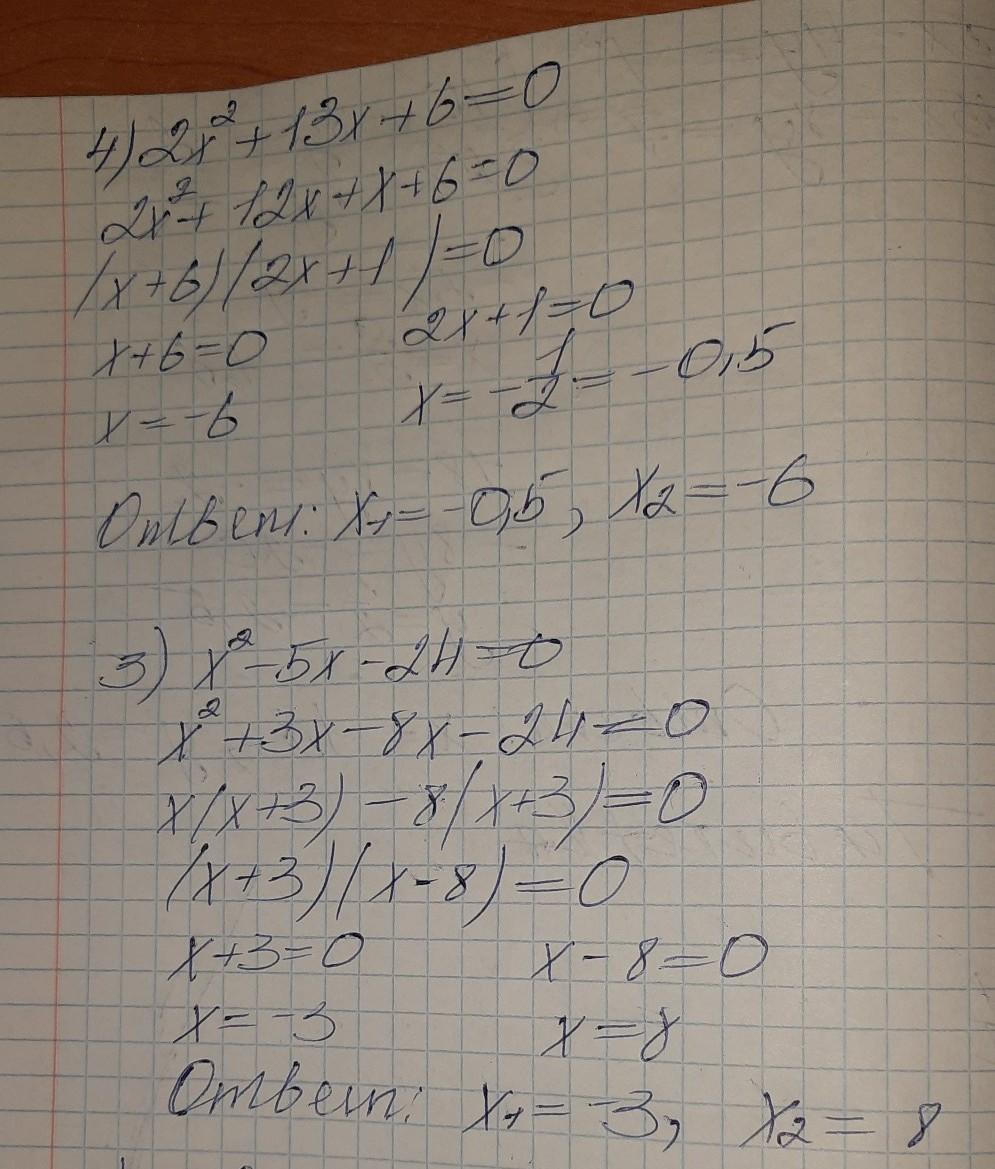 4) 2x² + 13x + 6 = 0
2x² + 12x + x + 6 = 0
(x+6)(2x+1) = 0
x+6=0 2x+1=0
x = -6 x = -1/2 = -0,5
Ответ: x₁ = -0,5, x₂ = -6
3) x² - 5x - 24 = 0
x² + 3x - 8x - 24 = 0
x(x+3) - 8(x+3) = 0
(x+3)(x-8) = 0
x+3=0 x-8=0
x = -3 x = 8
Ответ: x₁ = -3, x₂ = 8